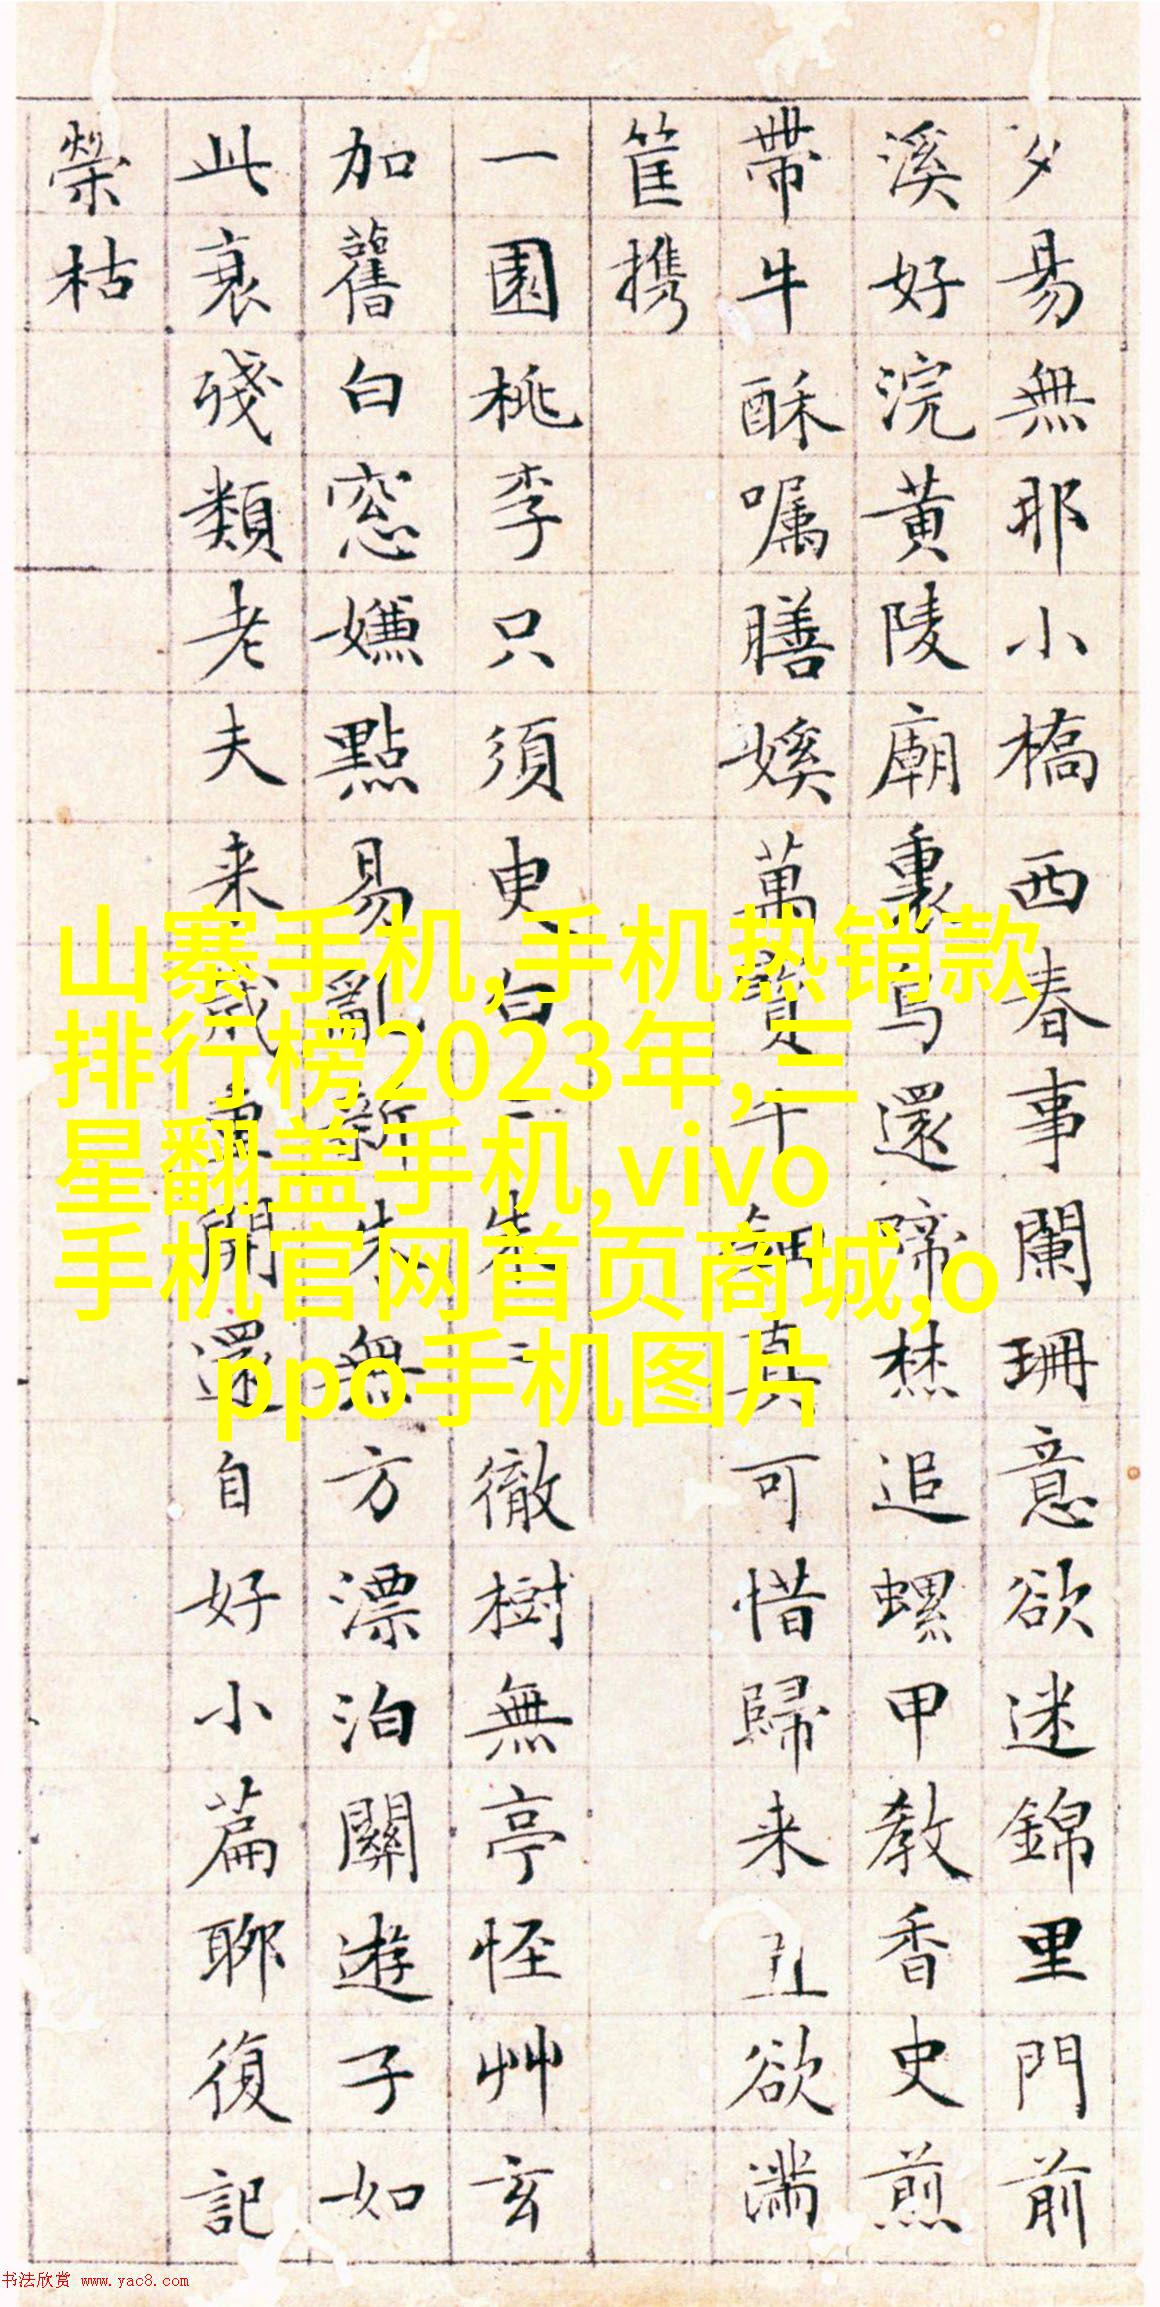 夕易無耶小橋西春事闌珊意欲迷錦里門前
溪好浣黃陵廟裏鳥還啼焚追螺甲教香史煎
帶牛酥囑膳媛萬寶千鈿真可惜歸来丑欲滿
筐携
一園桃李只須臾白白朱朱徹樹無亭怪艸玄
加舊白窓嫌點易亂新朱無方漂泊關遊子如
此衰殘類老夫来歲重開還自好小篇聊復記
榮枯
山寨手机,手机热销款
排行榜2023年,三
星翻盖手机,vivo
手机官网首页商城,o
ppo手机图片
书法欣赏 www.yac8.com